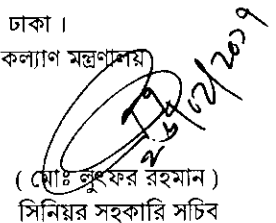 ঢাকা ।
কল্যাণ মন্ত্রণালয়
( মোঃ লুৎফর রহমান )
সিনিয়র সহকারি সচিব